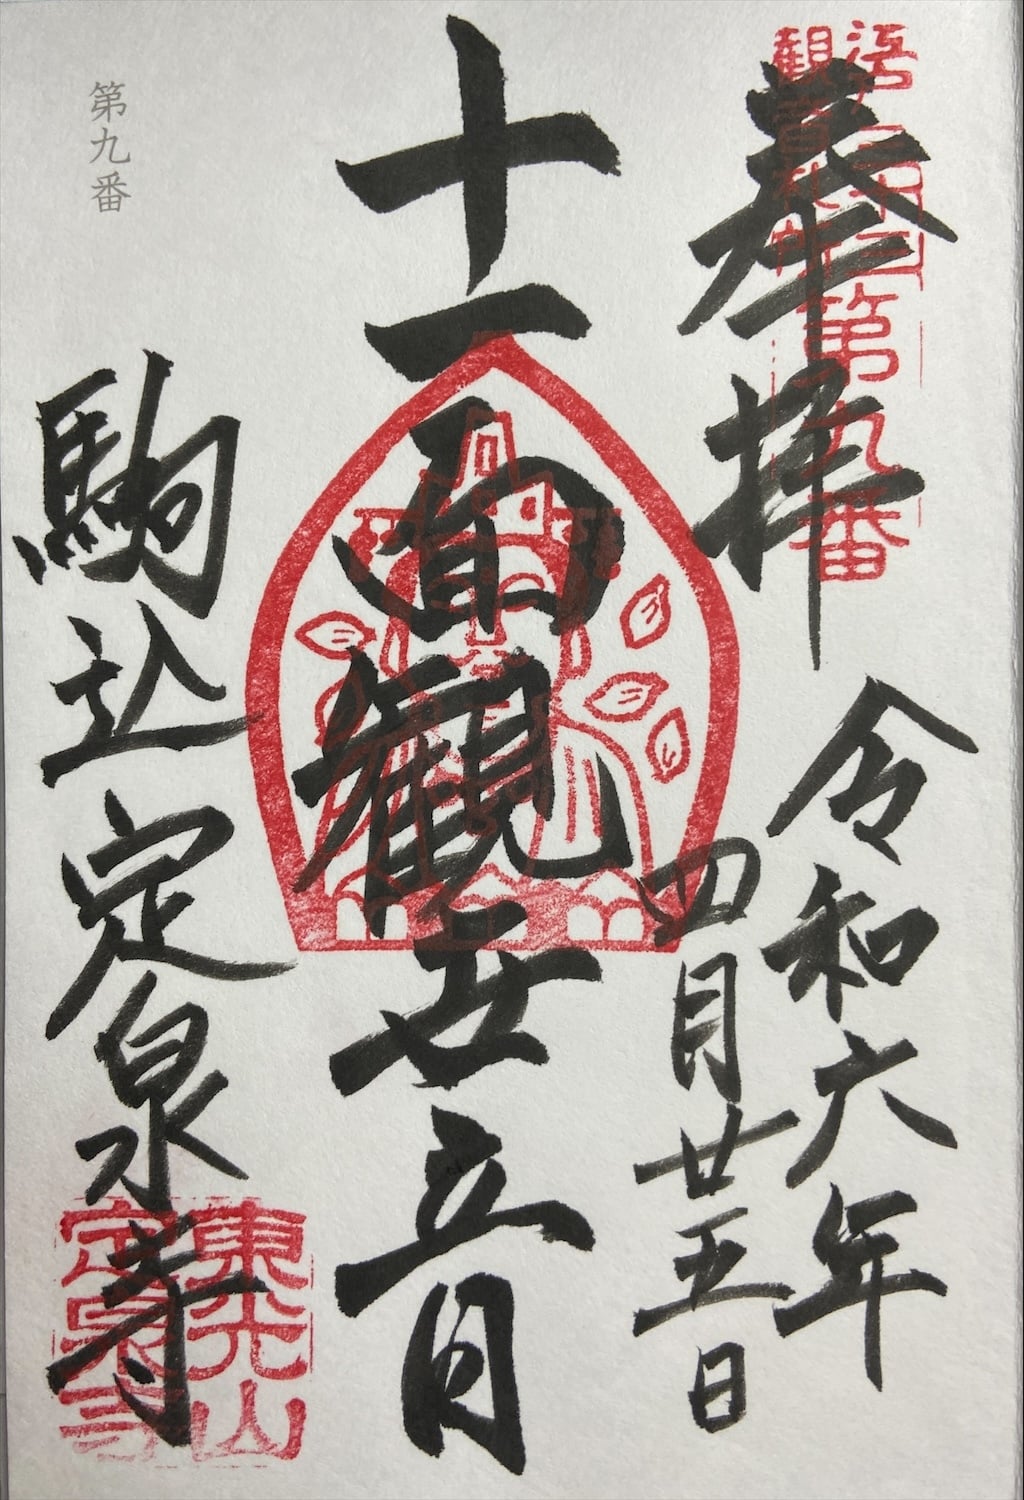 奉拝
令和六年
四月廿五日
十一面観世音
駒込定泉寺
第九番
江戸三十三
観音札所
第九番
東光山
定泉寺